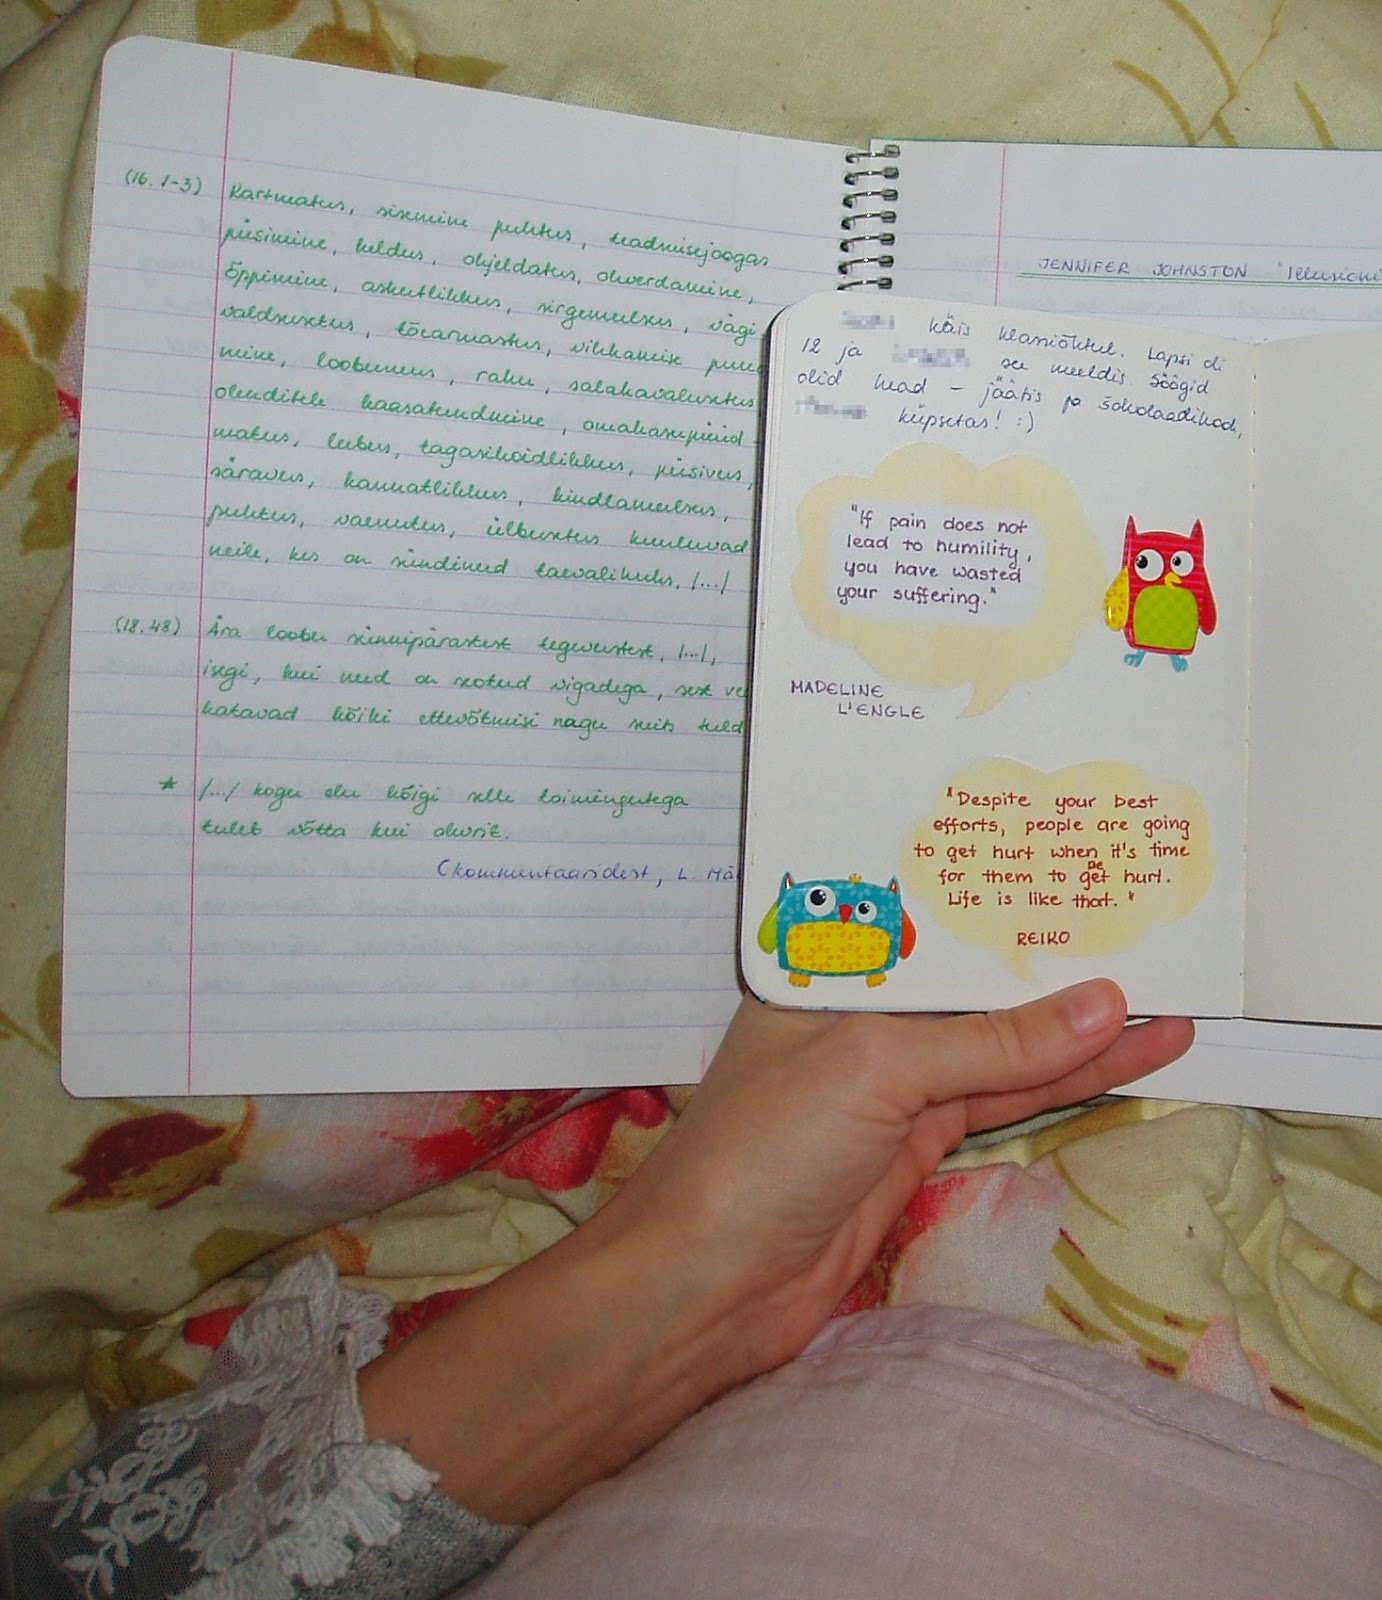 (16. 1-3) Kartmatus, sisemine puhtus, teadmisejoogas
püsimine, heldus, ohjeldatus, ohverdamine,
õppimine, askeetlikkus, sirgemeelsus, vägi-
valdsusetus, tõearmastus, vihkamise puu
mine, loobumus, rahu, salakavalusetus
olenditele kaasatundmine, omakasupüüd-
matus, leebus, tagasihoidlikkus, püsivus,
säravus, kannatlikkus, kindlameelsus,
puhtus, vaenutus, ülbusetus kuuluvad
neile, kes on sündinud taevalikuks, /.../
(18.48) Ära loobu sünnipärastest tegevustest, /.../,
isegi, kui need on seotud vigadega, sest ve
katavad kõiki ettevõtmisi nagu suits tuld
* /.../ kogu elu kõigi selle toimingutega
tuleb võtta kui ohvrit.
(kommentaaridest, L. Mä
JENNIFER JOHNSTON "Illusioni
käis klassiõhtul. Lapsi oli
12 ja see meeldis. Söögid
olid head – jäätis ja šokolaadikook,
küpsetas! :)
"If pain does not
lead to humility,
you have wasted
your suffering."
MADELINE
L'ENGLE
"Despite your best
efforts, people are going
to get hurt when it's time
for them to get be hurt.
Life is like that."
REIKO